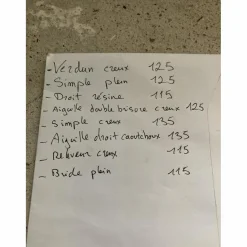 - Verdun creux 125
- Simple plein 125
- Droit résine 115
- Aiguille double bisore creux 125
- Simple creux 135
- Aiguille droit caoutchoux 135
- Releveur creux 115
- Bride plein 115